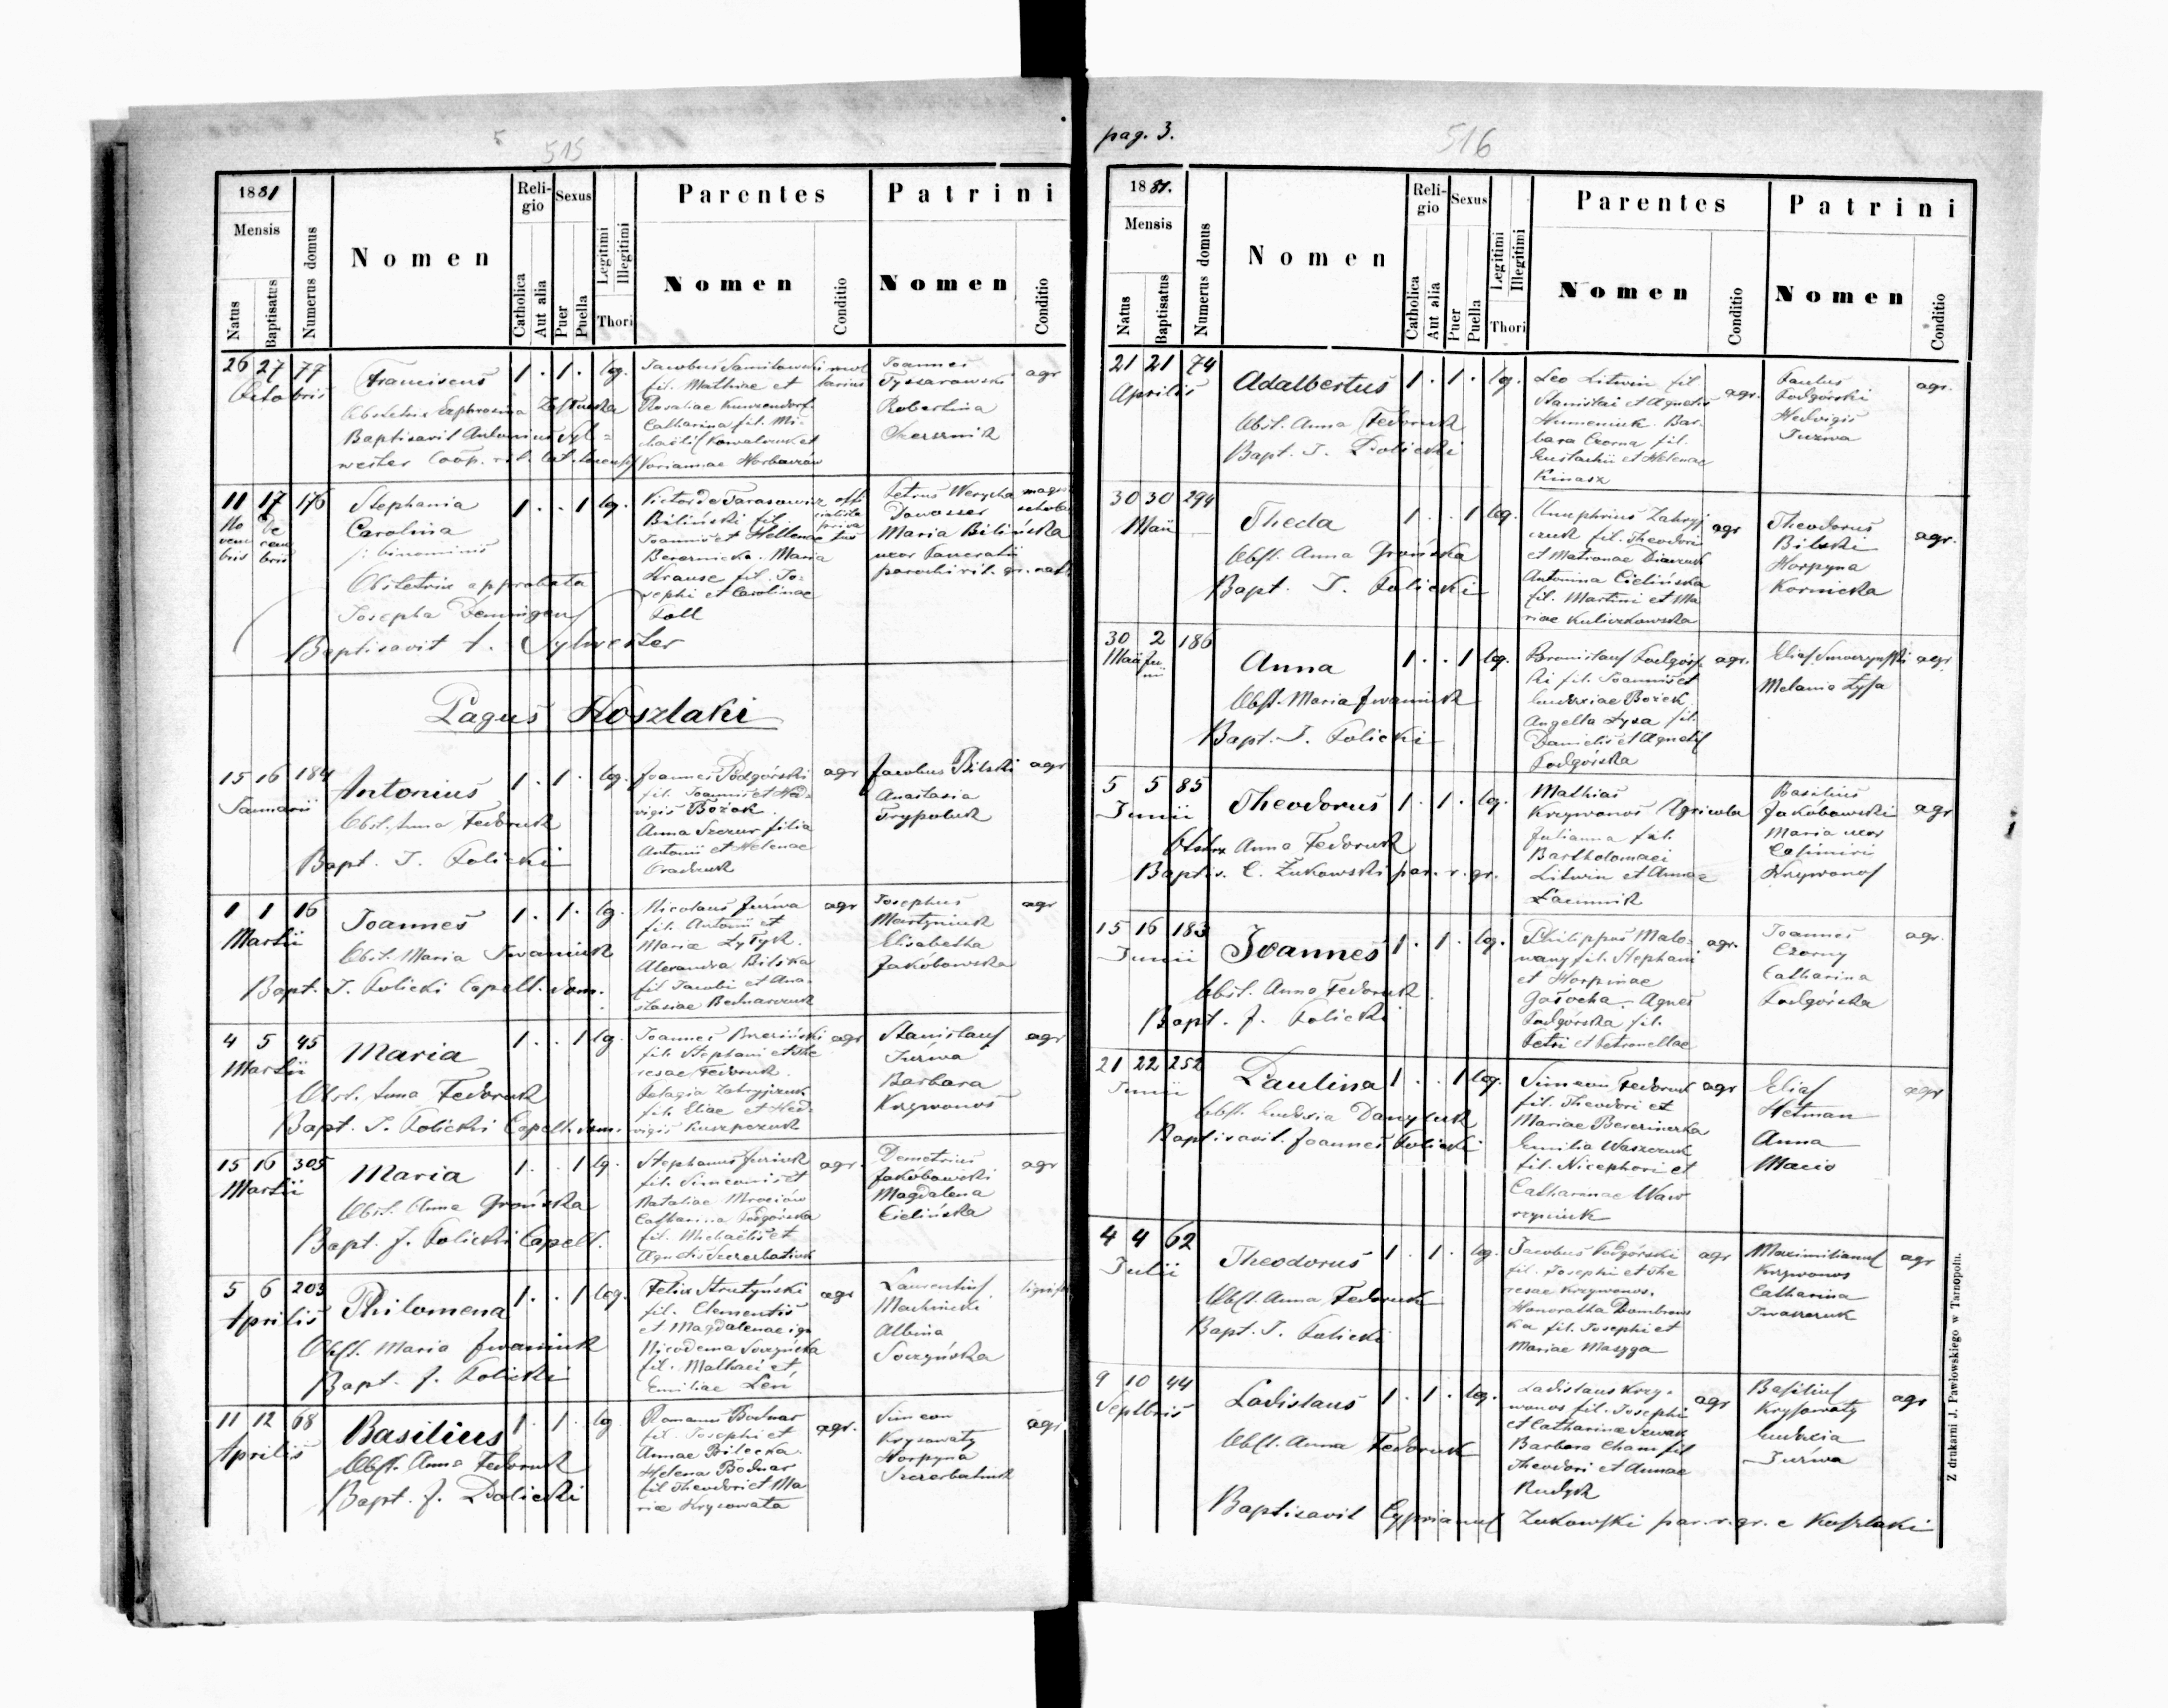 515
1881
Mensis
Natus
Baptisatus
Numerus domus
Nomen
Religio
Catholica
Aut alia
Sexus
Puer
Puella
Legitimi
Illegitimi
Thori
Parentes
Nomen
Conditio
Patrini
Nomen
Conditio
26 27 77
Octobris
Franciscus
1 . 1 . leg.
Obstetrix Euphrosina
Baptisavit Antonius Syl=
wester Coop. rit. lat.
Jacobus
fil. Mathiae et
Rosaliae
Catharina fil. Mi-
chaelis Kowalczuk et
Joannes
Tyszarowski
Robertina
agr
11 17 176
No vem bris
De cem bris
Stephania
Carolina
/: binominis
1 . . 1 leg.
Obstetrix approbata
Josepha
Baptisavit A. Sylwester
Victor de Tarasowicz
Biliński fil.
Joannis et Hellenae
Maria
Krause fil. Jo=
sephi et Carolinae
Toll
Petrus
Maria Bilińska
uxor Pancratii
parochi rit. gr.
Pagus Koszlaki
15 16 184
Januarii
Antonius
1 . 1 . leg.
Obst. Anna Fedoruk
Bapt. J. Policki
Joannes Podgórski
fil. Joannis et Hed=
vigis Bożek
Anna Szczur filia
Antonii et Helenae
agr
Jacobus Bilski
Anastasia
Trypoluk
agr
1 1 16
Martii
Joannes
1 . 1 . lg.
Obst. Maria Iwaniuk
Bapt. J. Policki Capell. dom.
Nicolaus Jurwa
fil. Antonii et
Mariae
Alexandra Bilska
fil Jacobi et Ana-
stasiae Bednarczuk
agr
Josephus
Martyniuk
Elisabetha
Jakóbowska
agr
4 5 45
Martii
Maria
1 . . 1 lg.
Obst. Anna Fedoruk
Bapt. J. Policki Capell. dom.
Joannes Brzeziński
fil. Stephani et The
resae Fedoruk.
Pelagia Zahryjczuk
fil. Eliae et Hed-
vigis
agr
Stanislaus
Jurwa
Barbara
Krzywonos
agr
15 16 305
Martii
Maria
1 . . 1 lg.
Obst. Anna Grońska
Bapt. J. Policki Capell.
Stephanus
fil. Simeonis et
Nataliae
Catharina Podgórska
fil. Michaelis et
Agnetis Szczerbatiuk
agr.
Demetrius
Jakóbowski
Magdalena
Cielińska
agr
5 6 203
Aprilis
Philomena
1 . . 1 leg.
Obst. Maria Iwaniuk
Bapt. J. Policki
Felix Strutyński
fil. Clementis
et Magdalenae
Nicodema
fil. Mathaei et
Emiliae Leń
agr
Laurentius
Machnicki
Albina
11 12 68
Aprilis
Basilius
1 . 1 . lg
Obst. Anna Fedoruk
Bapt. J. Policki
Romanus Bodnar
fil. Josephi et
Annae Bilecka.
Helena Bodnar
fil Theodori et Ma
riae Krysowata
agr.
Simeon
Krysowaty
Horpyna
Szczerbatiuk
agr
pag. 3.
516
1881.
Mensis
Natus
Baptisatus
Numerus domus
Nomen
Religio
Catholica
Aut alia
Sexus
Puer
Puella
Legitimi
Illegitimi
Thori
Parentes
Nomen
Conditio
Patrini
Nomen
Conditio
21 21 74
Aprilis
Adalbertus
1 . 1 . lg.
Obst. Anna Fedoruk
Bapt. J. Policki
Leo Litwin fil.
Stanislai et Agnetis
Humeniuk. Bar-
bara Czorna fil.
Eustachii et Helenae
Kinasz
agr.
Paulus
Podgórski
Hedvigis
Jurwa
agr.
30 30 294
Maii
Theda
1 . . 1 leg.
Obst. Anna Grońska
Bapt. J. Policki
Onuphrius Zahryj
czuk fil. Theodori
et Matronae
Antonina Cielińska
fil. Martini et Ma
riae Kuliczkowska
agr
Theodorus
Bilski
Horpyna
Kornicka
agr.
30 2 186
Maii Junii
Anna
1 . . 1 leg.
Obst. Maria Iwaniuk
Bapt. J. Policki
Bronislaus Podgórs
ki fil. Joannis et
Eudoxiae Bożek
Angella Łysa fil.
Danielis et Agnetis
Podgórska
agr.
Melania Łysa
agr
5 5 85
Junii
Theodorus
1 . 1 . leg.
Obstrx Anna Fedoruk
Baptis. C. Żukowski par. r. gr.
Mathias
Krzywonos
Julianna fil.
Bartholomaei
Litwin et Annae
Agricola
Basilius
Jakóbowski
Maria uxor
Casimiri
Krzywonos
agr
15 16 183
Junii
Joannes
1 . 1 . leg.
Obst. Anna Fedoruk
Bapt. J. Policki
Philippus Malo-
wany fil. Stephani
et Horpinae
Agnes
Podgórska fil.
Petri et Petronellae
agr.
Joannes
Czorny
Catharina
Podgórska
agr.
21 22 252
Junii
Paulina
1 . . 1 leg.
Obst. Eudoxia Danyluk
Baptisavit. Joannes Policki
Simeon Fedoruk
fil. Theodori et
Mariae
Emilia Waszczuk
fil. Nicephori et
Catharinae Waw
rzyniuk
agr
Elias
Hetman
Anna
agr
4 4 62
Julii
Theodorus
1 . 1 . leg.
Obst. Anna Fedoruk
Bapt. J. Policki
Jacobus Podgórski
fil. Josephi et The
resae Krzywonos.
Honoratha Dombrows
ka fil. Josephi et
Mariae Masyga
agr
Maximilianus
Krzywonos
Catharina
Iwaszczuk
agr
9 10 44
Septbris
Ladislaus
1 . 1 . leg.
Obst. Anna Fedoruk
Ladislaus Krzy-
wonos fil. Josephi
et Catharinae
Barbara Cham fil
Theodori et Annae
Rudyk
agr
Basilius
Krysowaty
Eudoxia
Jurwa
agr
Baptisavit Cyprianus Żukowski par. r. gr. e Koszlaki
Z drukarni J. Pawłowskiego w Tarnopolu.